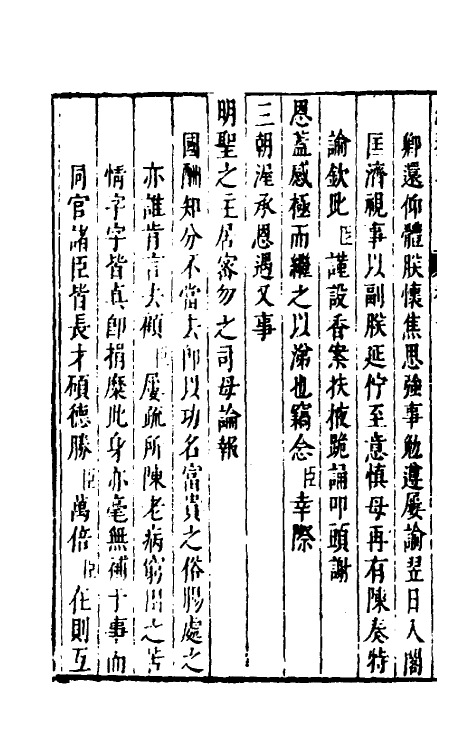 卿還仰體朕懷焦思強事勉遵屢諭翌日入閣
匡濟視事以副朕延佇至意慎毋再有陳奏特
諭欽此臣謹設香案扶掖跪誦叩頭謝
恩蓋感極而繼之以涕也竊念臣幸際
三朝渥承恩遇又事
明聖之主居密勿之司毋論報
國酬知分不當去即以功名富貴之俗腸處之
亦誰肯言去顧臣屢疏所陳老病窮困之苦
情字字皆真即捐糜此身亦毫無補于事而
同官諸臣皆長才碩德勝臣萬倍臣在則互